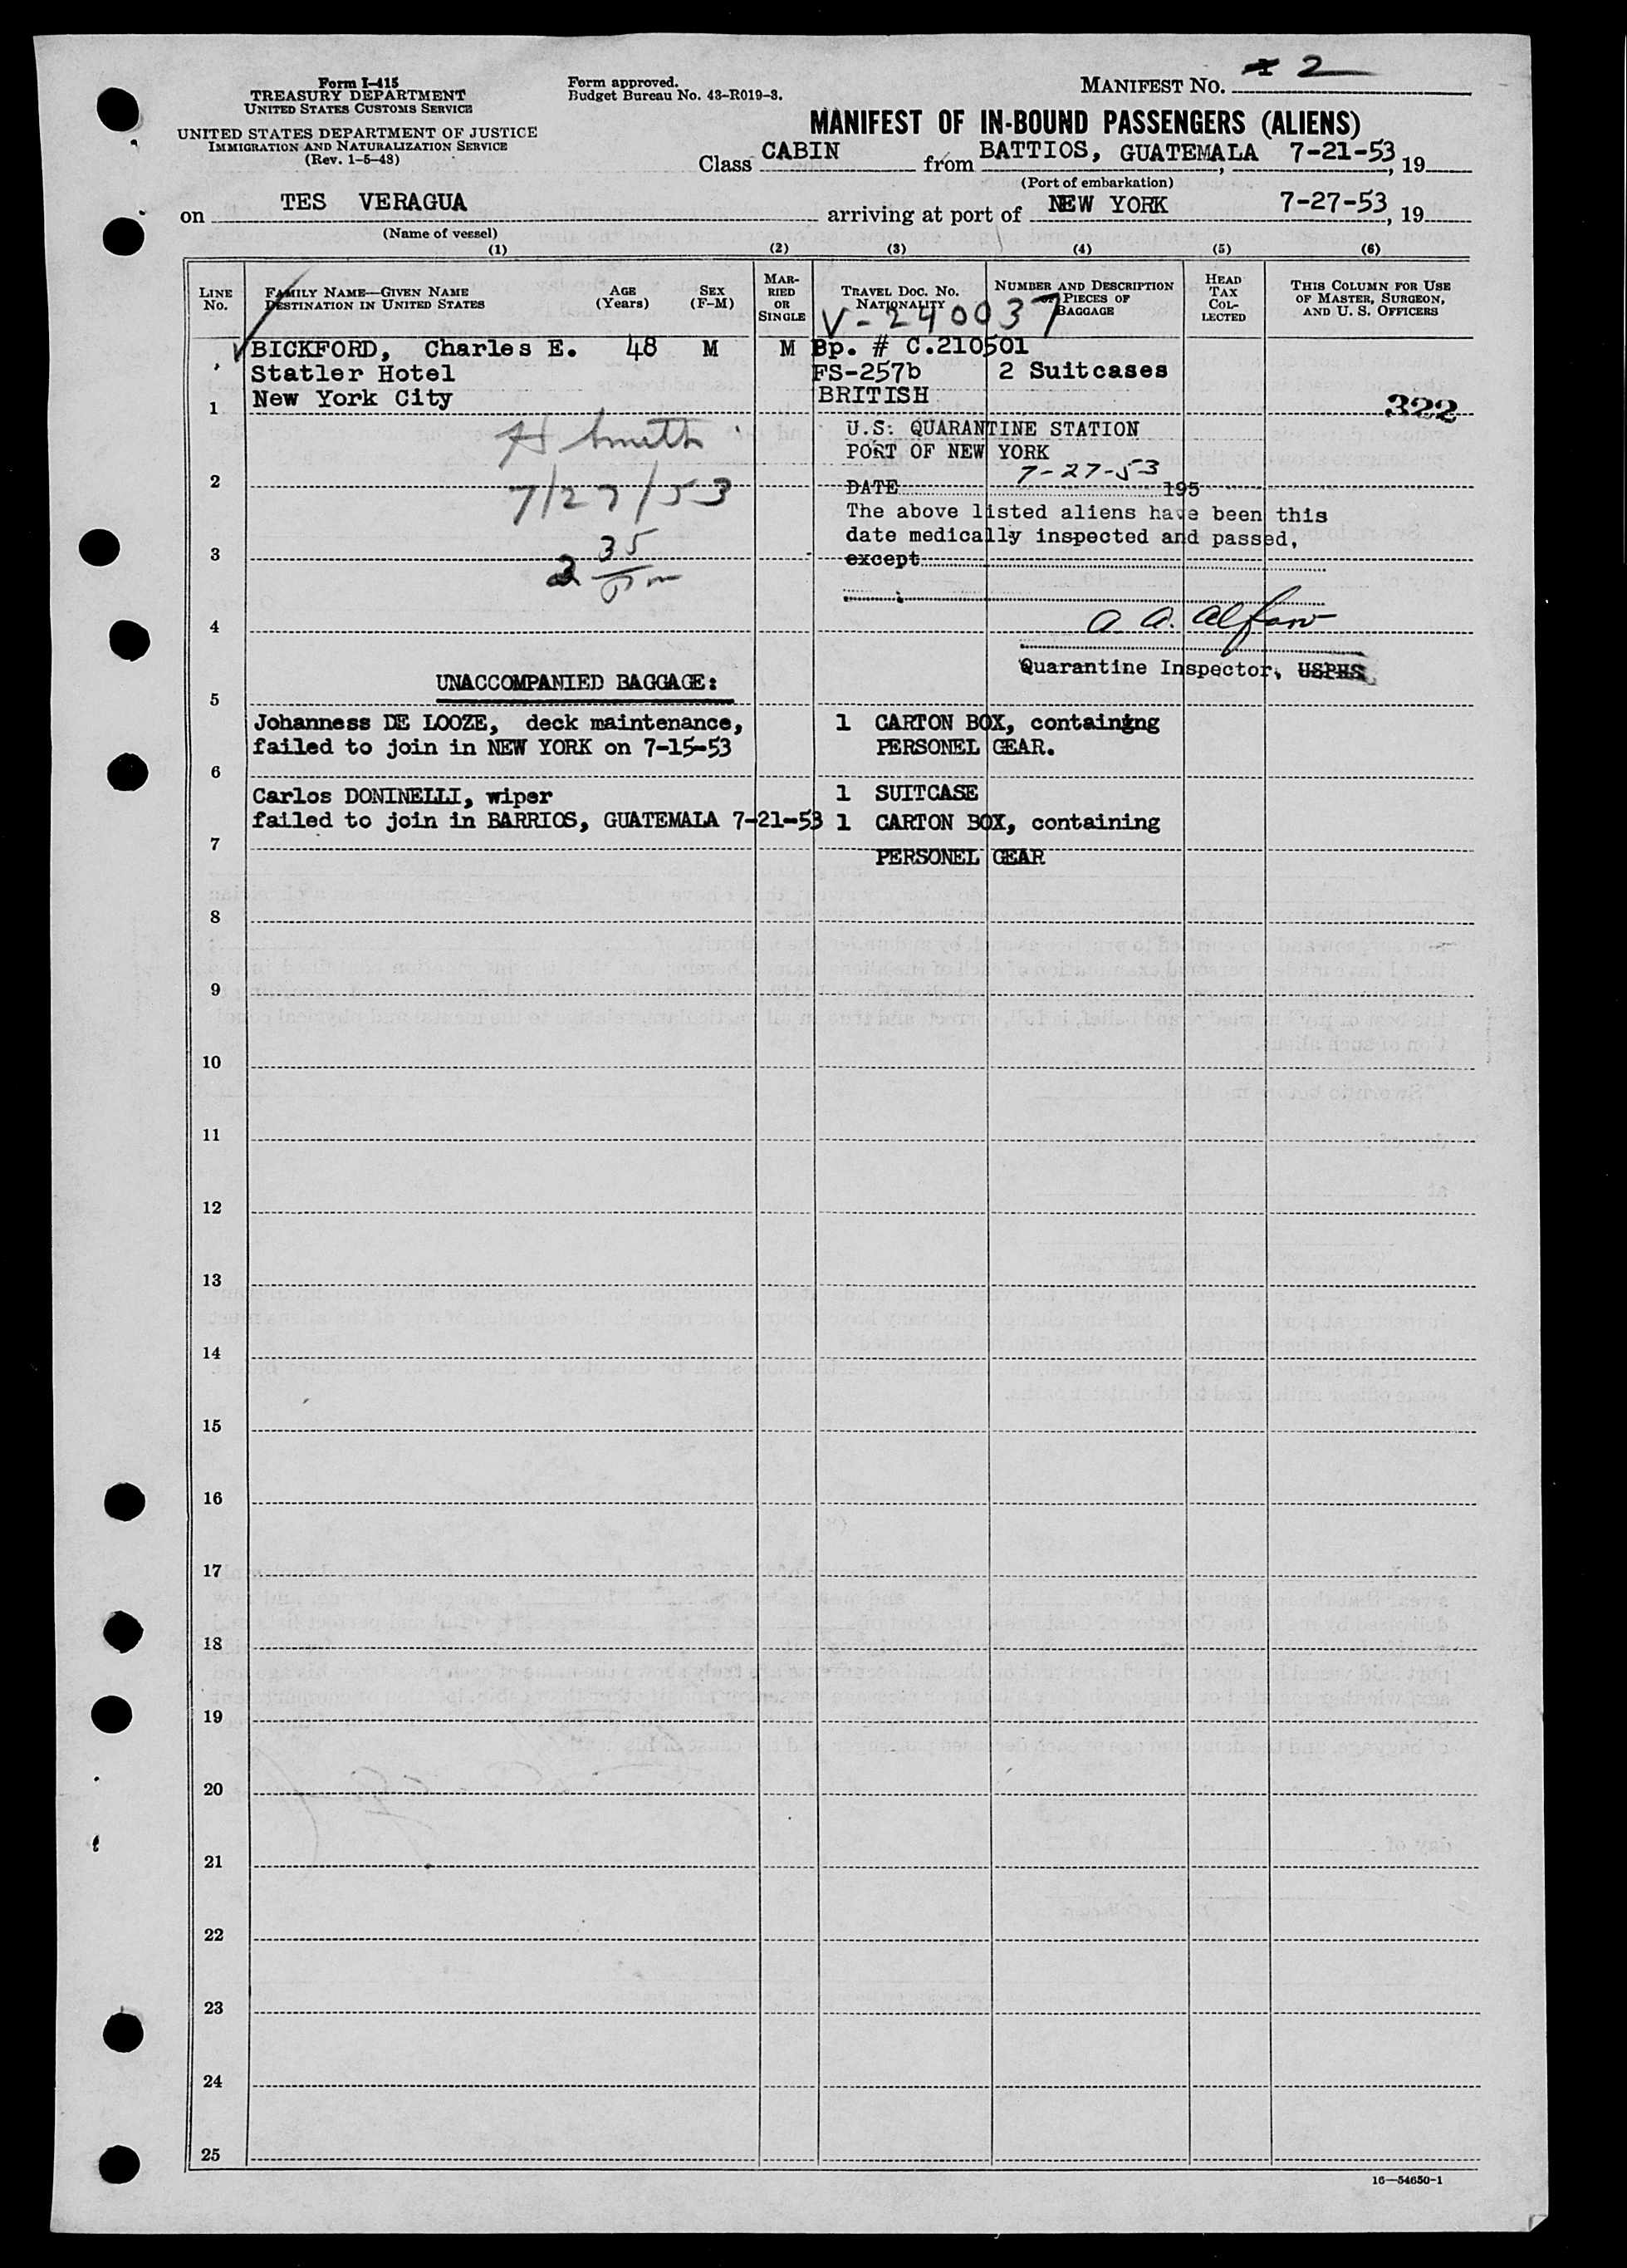 Form I-415
TREASURY DEPARTMENT
UNITED STATES CUSTOMS SERVICE
UNITED STATES DEPARTMENT OF JUSTICE
IMMIGRATION AND NATURALIZATION SERVICE
(Rev. 1-5-48)
Form approved.
Budget Bureau No. 43-R019-3.
MANIFEST No. 2
MANIFEST OF IN-BOUND PASSENGERS (ALIENS)
Class CABIN from BATTIOS, GUATEMALA 7-21-53, 19
(Port of embarkation)
on TES VERAGUA arriving at port of NEW YORK 7-27-53, 19
(Name of vessel)
(1) (2) (3) (4) (5) (6)
LINE No.
FAMILY NAME—GIVEN NAME
DESTINATION IN UNITED STATES
AGE (Years)
SEX (F-M)
MARRIED OR SINGLE
TRAVEL DOC. No.
NATIONALITY
NUMBER AND DESCRIPTION OF PIECES OF BAGGAGE
HEAD TAX COLLECTED
THIS COLUMN FOR USE OF MASTER, SURGEON, AND U. S. OFFICERS
V-240037
BICKFORD, Charles E. 48 M M Bp. # C.210501
Statler Hotel FS-257b 2 Suitcases
1 New York City BRITISH 322
H Smith
7/27/53
U.S. QUARANTINE STATION
PORT OF NEW YORK
2 DATE 7-27-53 195
The above listed aliens have been this
date medically inspected and passed,
3 except
2 35 pm
4 A. A. Alfaro
Quarantine Inspector, USPHS
UNACCOMPANIED BAGGAGE:
5
Johanness DE LOOZE, deck maintenance, 1 CARTON BOX, containing
failed to join in NEW YORK on 7-15-53 PERSONEL GEAR.
6
Carlos DONINELLI, wiper 1 SUITCASE
failed to join in BARRIOS, GUATEMALA 7-21-53 1 CARTON BOX, containing
7 PERSONEL GEAR
8
9
10
11
12
13
14
15
16
17
18
19
20
21
22
23
24
25
16—54650-1